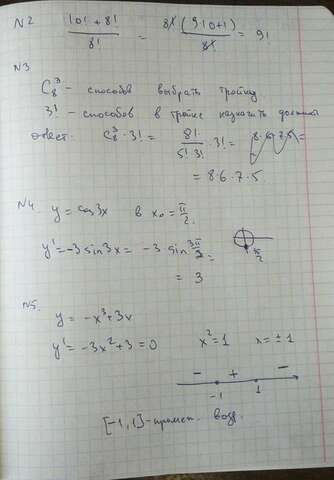 N2 (10! + 8!)/8! = 8!(9·10+1)/8! = 91
N3
C₈³ - способов выбрать тройку
3! - способов в тройке назначить должност
ответ: C₈³ · 3! = 8!/(5! 3!) · 3! =
= 8·6·7·5.
N4. y = cos 3x в x₀ = π/2.
y' = -3 sin 3x = -3 sin 3π/2 =
= 3
N5.
y = -x³ + 3x
y' = -3x² + 3 = 0 x² = 1 x = ±1
- + -
-1 1
[-1, 1] - промеж. возр.